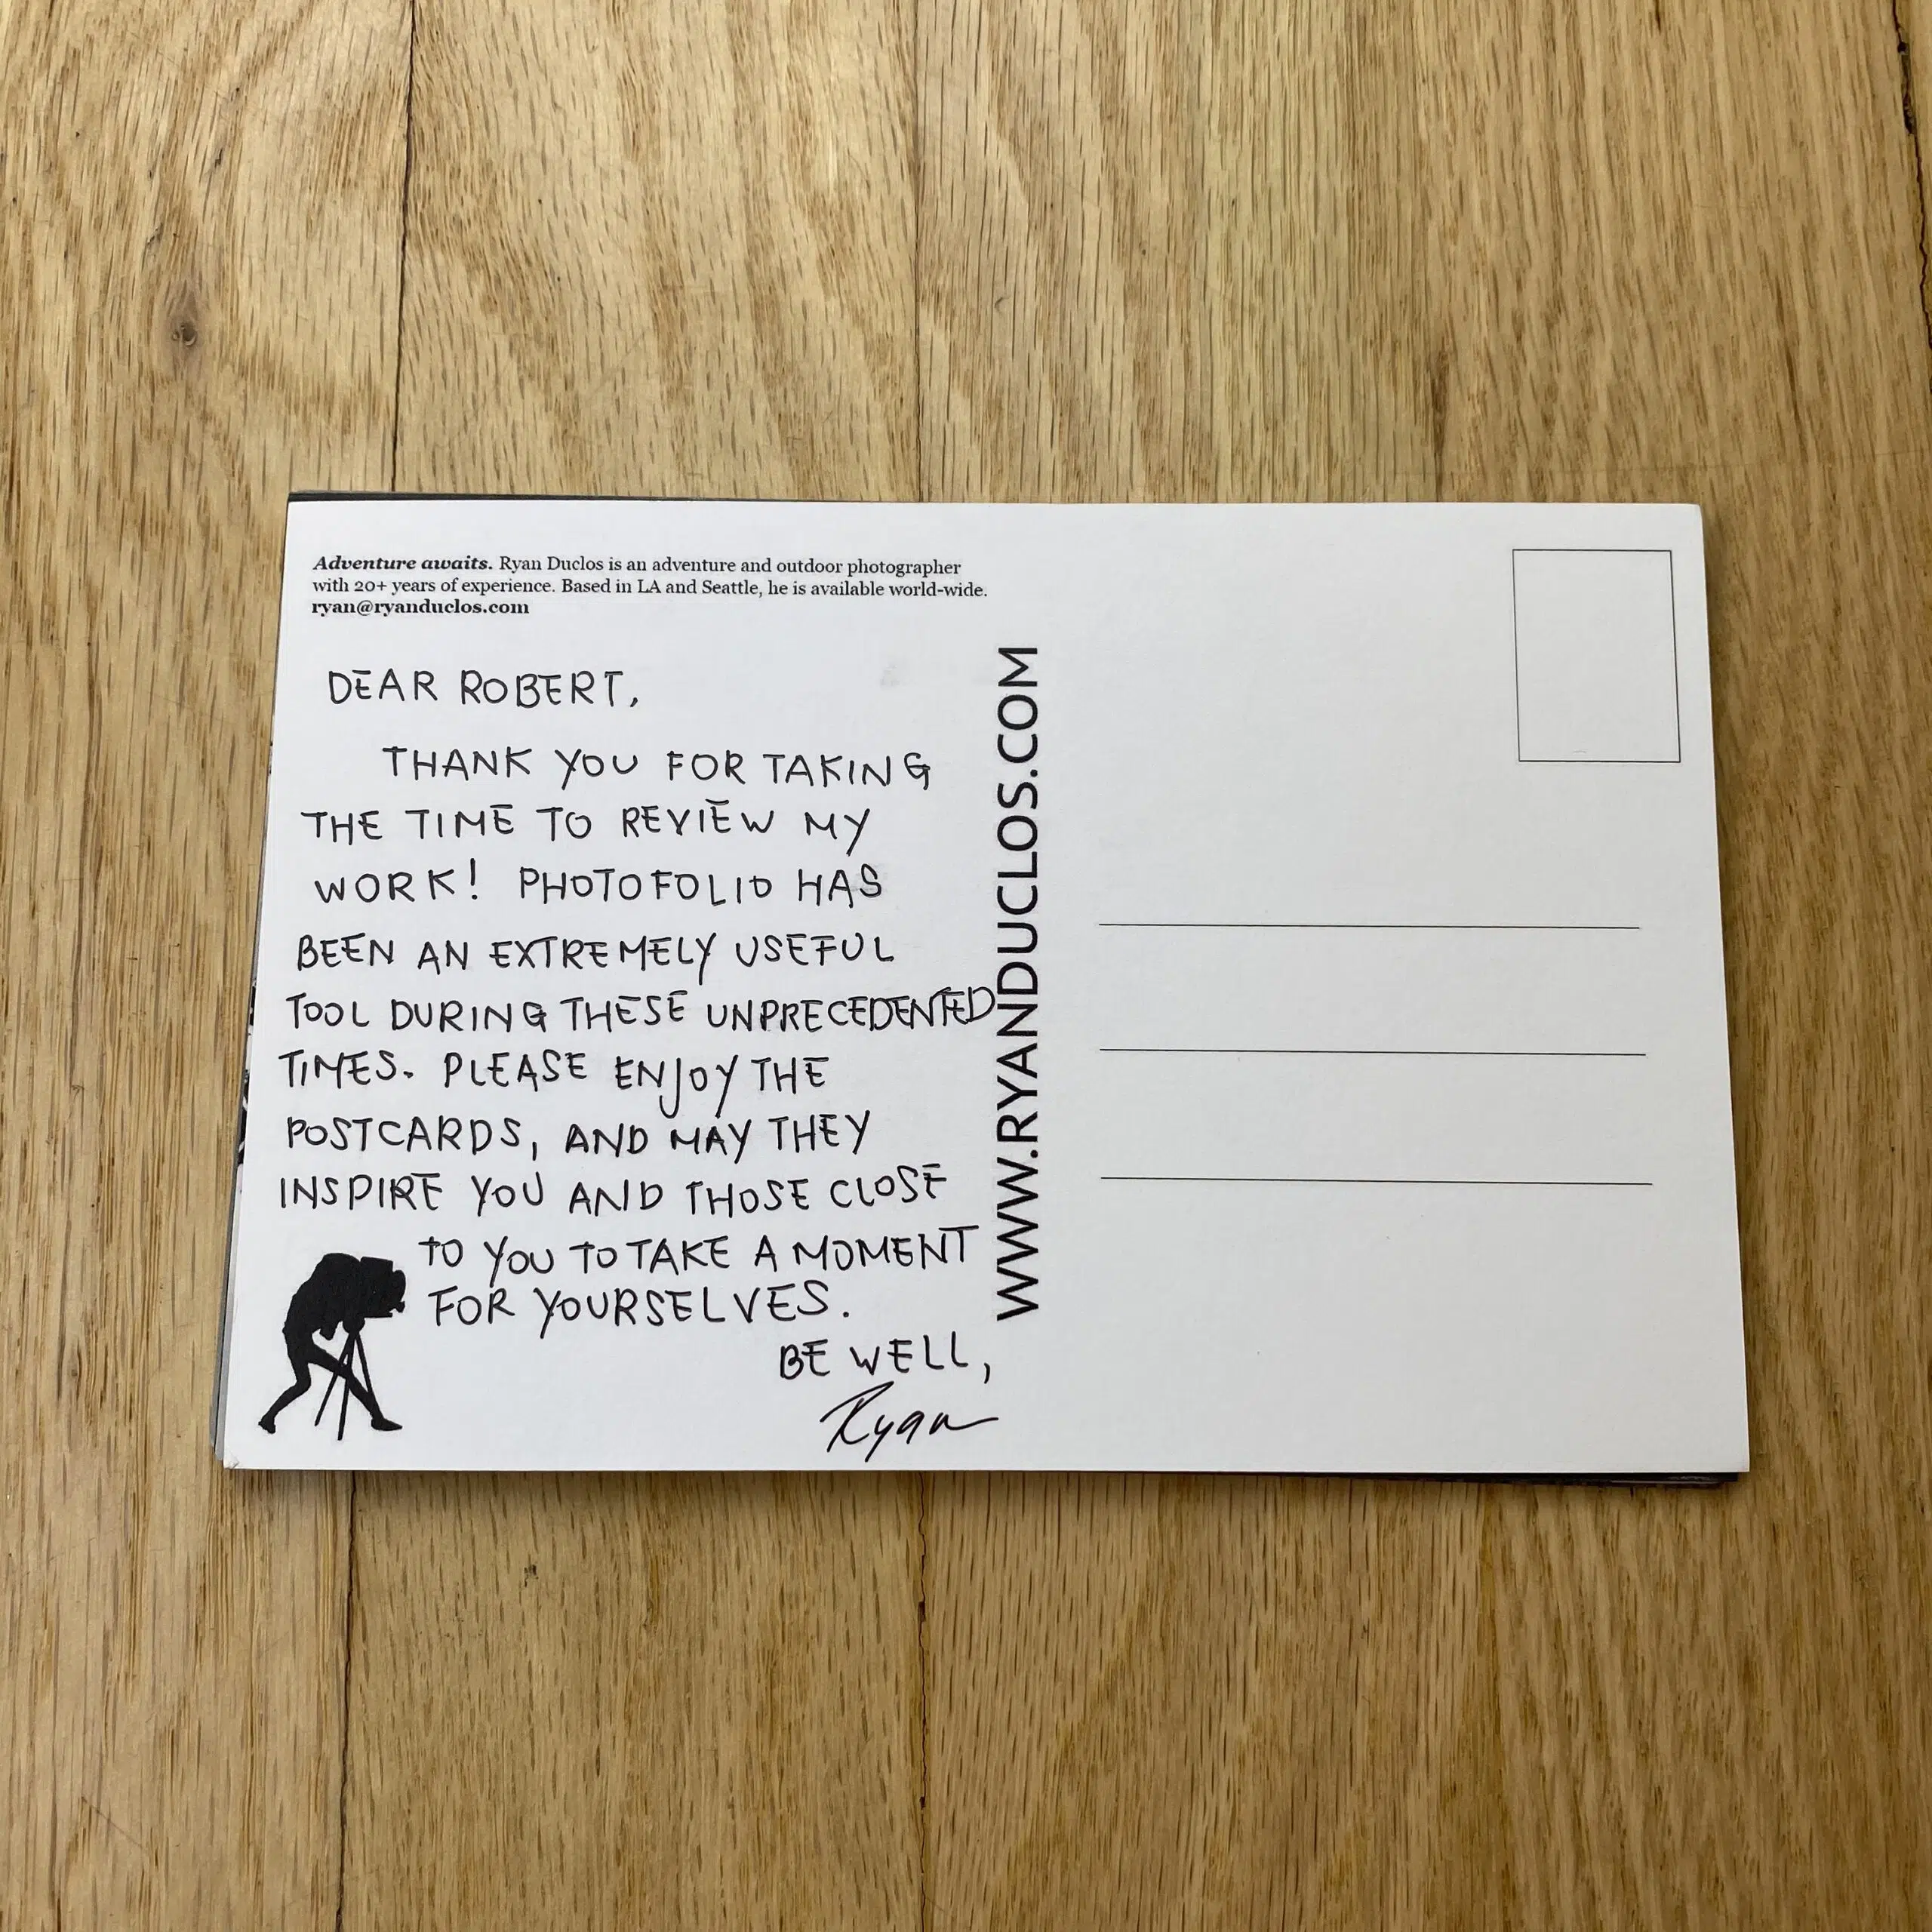 Adventure awaits. Ryan Duclos is an adventure and outdoor photographer
with 20+ years of experience. Based in LA and Seattle, he is available world-wide.
ryan@ryanduclos.com
DEAR ROBERT,
THANK YOU FOR TAKING
THE TIME TO REVIEW MY
WORK! PHOTOFOLIO HAS
BEEN AN EXTREMELY USEFUL
TOOL DURING THESE UNPRECEDENTED
TIMES. PLEASE ENJOY THE
POSTCARDS, AND MAY THEY
INSPIRE YOU AND THOSE CLOSE
TO YOU TO TAKE A MOMENT
FOR YOURSELVES.
BE WELL,
Ryan
WWW.RYANDUCLOS.COM